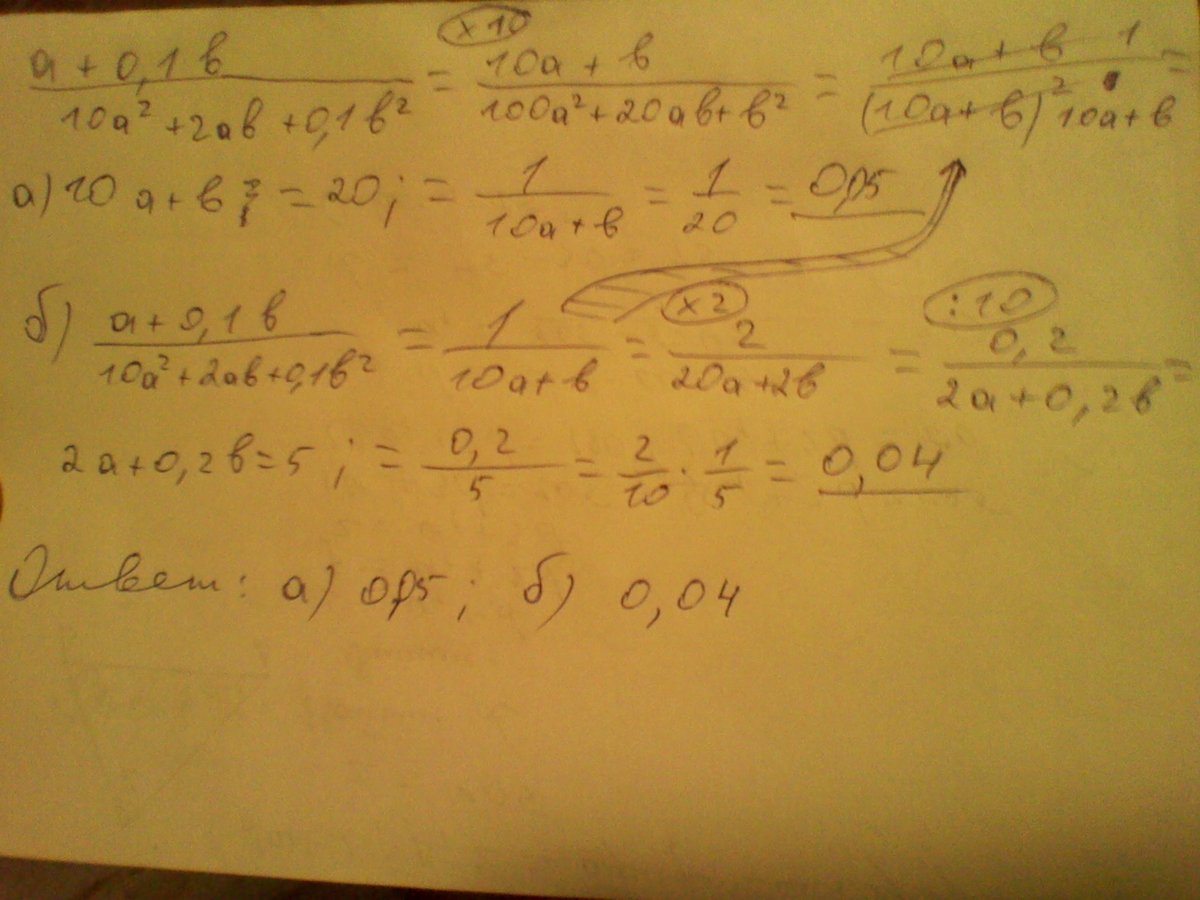 ×10
a + 0,1в / 10a² + 2ав + 0,1в² = 10a + в / 100a² + 20ав + в² = 10a + в 1 / (10a + в)² 10a + в =
а) 10a + в = 20; = 1 / 10a + в = 1 / 20 = 0,05
×2 :10
б) a + 0,1в / 10a² + 2ав + 0,1в² = 1 / 10a + в = 2 / 20a + 2в = 0,2 / 2a + 0,2в =
2a + 0,2в = 5; = 0,2 / 5 = 2 / 10 · 1 / 5 = 0,04
Ответ: а) 0,05; б) 0,04